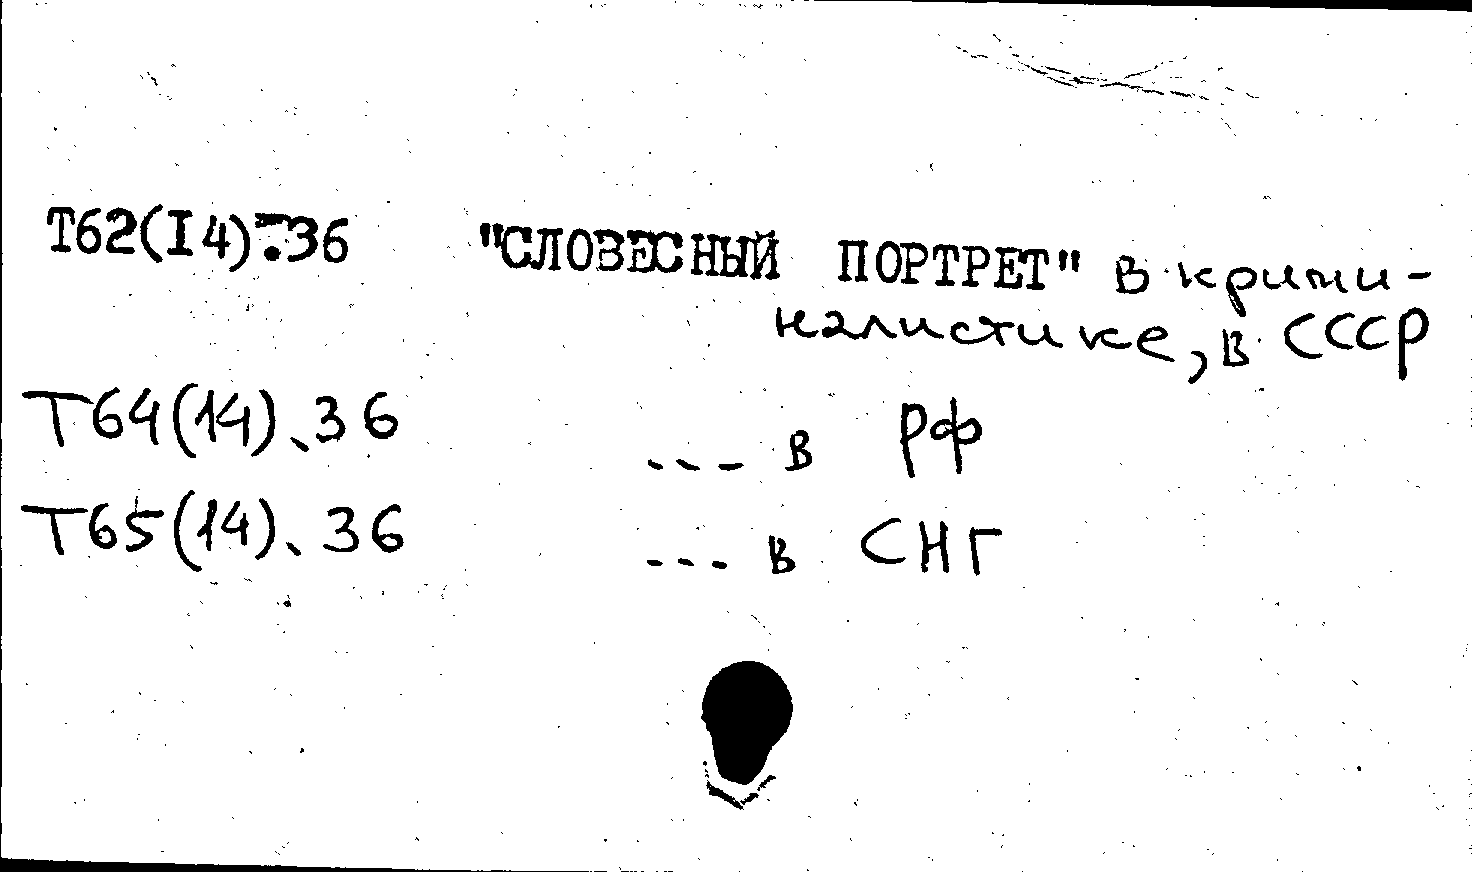 Т62(I4).36 "СЛОВЕСНЫЙ ПОРТРЕТ" в крими-
налистике, в СССР
Т64(14).36 --- в РФ
Т65(14).36 --- в СНГ